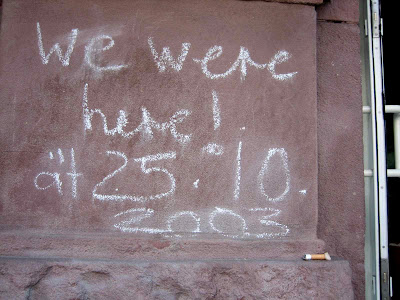 We were
here!
ät 25.10.
2003